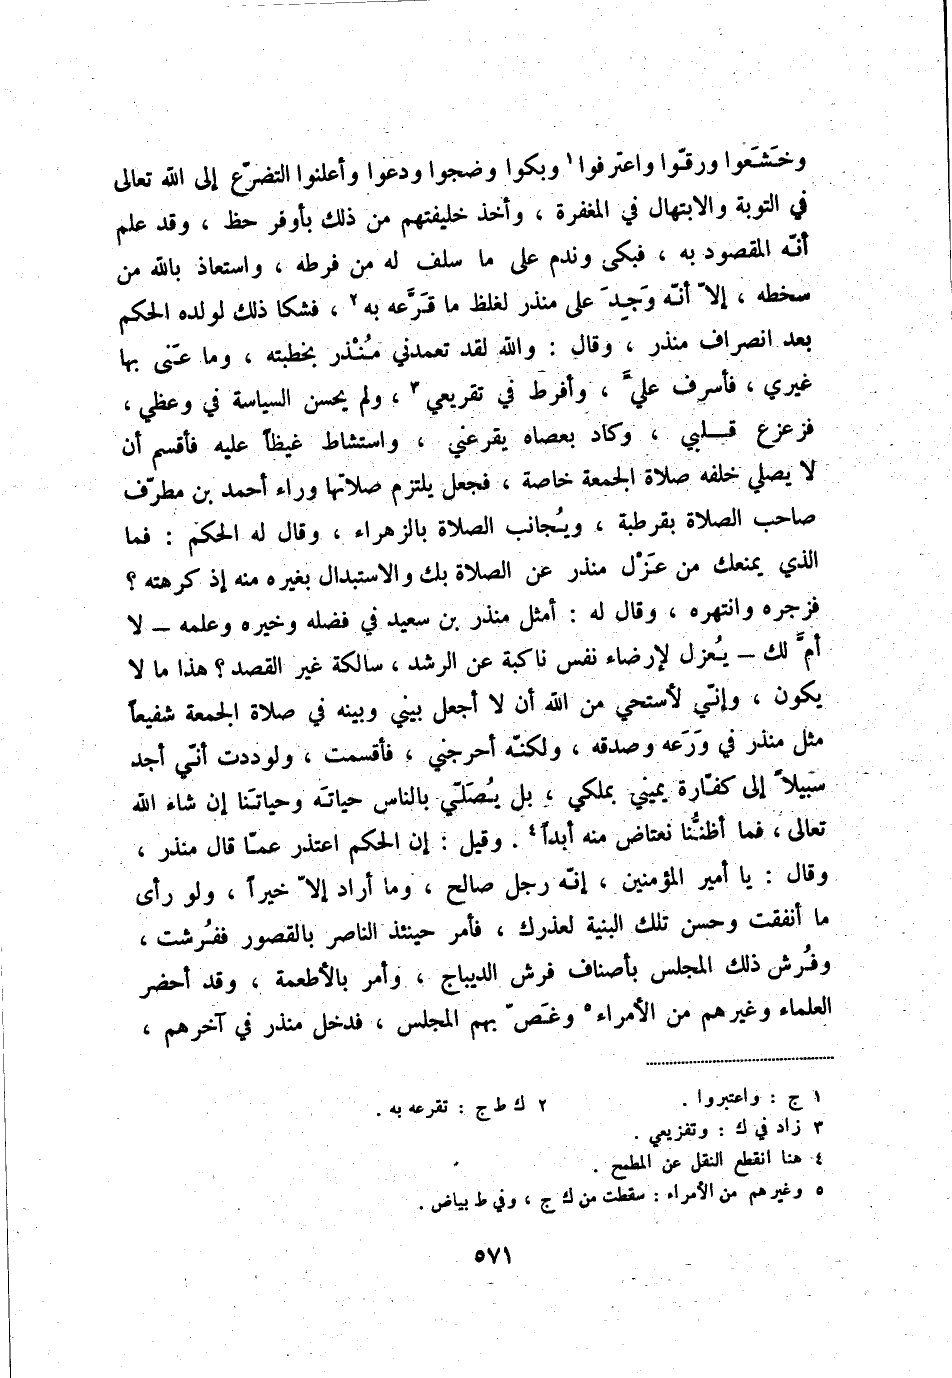 وخَشَعوا ورقّوا واعترفوا١ وبكوا وضجوا ودعوا وأعلنوا التضرّع إلى الله تعالى
في التوبة والابتهال في المغفرة ، وأخذ خليفتهم من ذلك بأوفر حظ ، وقد علم
أنّه المقصود به ، فبكى وندم على ما سلف له من فرطه ، واستعاذ بالله من
سخطه ، إلاّ أنّه وَجِدَ على منذر لغلظ ما قَرَّعه به٢ ، فشكا ذلك لولده الحكم
بعد انصراف منذر ، وقال : والله لقد تعمدني مُنْذر بخطبته ، وما عَنى بها
غيري ، فأسرف عليَّ ، وأفرط في تقريعي٣ ، ولم يحسن السياسة في وعظي ،
فزعزع قلبي ، وكاد بعصاه يقرعني ، واستشاط غيظاً عليه فأقسم أن
لا يصلي خلفه صلاة الجمعة خاصة ، فجعل يلتزم صلاتها وراء أحمد بن مطرّف
صاحب الصلاة بقرطبة ، ويُجانب الصلاة بالزهراء ، وقال له الحكم : فما
الذي يمنعك من عَزْل منذر عن الصلاة بك والاستبدال بغيره منه إذ كرهته ؟
فزجره وانتهره ، وقال له : أمثل منذر بن سعيد في فضله وخيره وعلمه – لا
أمَّ لك – يُعزل لإرضاء نفس ناكبة عن الرشد ، سالكة غير القصد ؟ هذا ما لا
يكون ، وإنّي لأستحي من الله أن لا أجعل بيني وبينه في صلاة الجمعة شفيعاً
مثل منذر في وَرَعه وصدقه ، ولكنّه أحرجني ، فأقسمت ، ولوددت أنّي أجد
سبيلاً إلى كفّارة يميني بملكي ، بل يُصَلّي بالناس حياتَه وحياتَنا إن شاء الله
تعالى ، فما أظنُّنا نعتاض منه أبداً٤ . وقيل : إن الحكم اعتذر عمّا قال منذر ،
وقال : يا أمير المؤمنين ، إنّه رجل صالح ، وما أراد إلاّ خيراً ، ولو رأى
ما أنفقت وحسن تلك البنية لعذرك ، فأمر حينئذ الناصر بالقصور ففُرشت ،
وفُرش ذلك المجلس بأصناف فرش الديباج ، وأمر بالأطعمة ، وقد أحضر
العلماء وغيرهم من الأمراء٥ وغَصّ بهم المجلس ، فدخل منذر في آخرهم ،
١ ج : واعتبروا . ٢ ك ط ج : تقرعه به .
٣ زاد في ك : وتفزيعي .
٤ هنا انقطع النقل عن المطمح .
٥ وغيرهم من الأمراء : سقطت من ك ج ، وفي ط بياض .
٥٧١